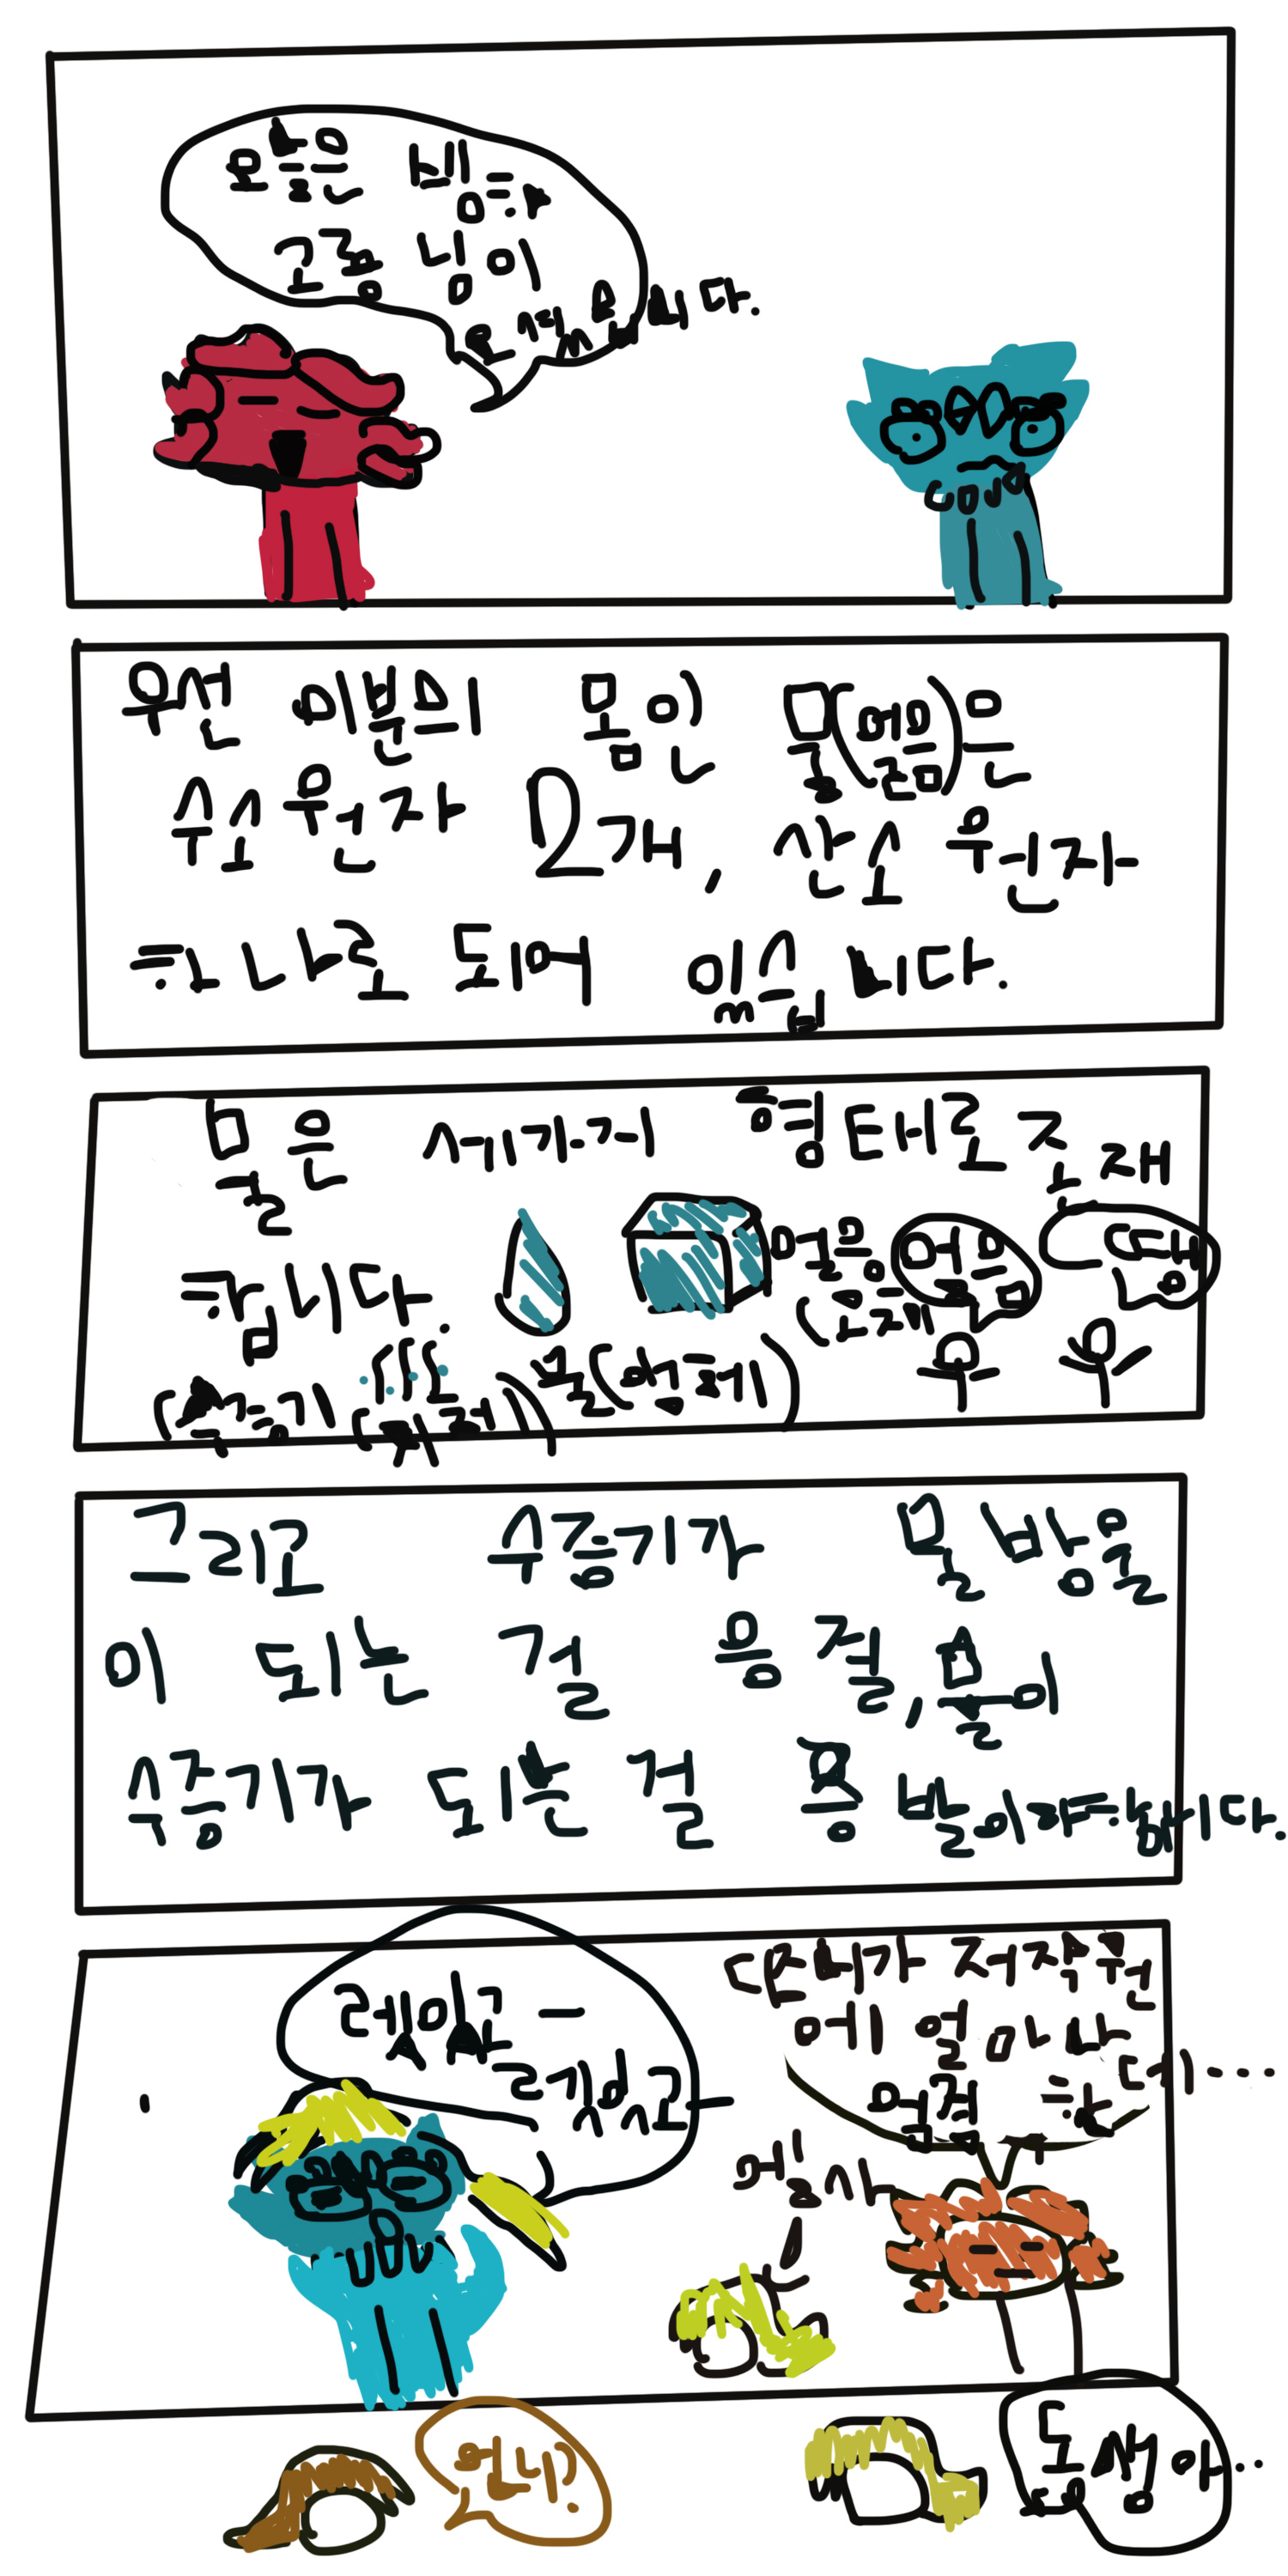 오늘은 빙하
고룡 님이
오셨습니다.
우선 이분의 몸인 물(얼음)은
수소 원자 2개, 산소 원자
하나로 되어 있습니다.
물은 세가지 형태로 존재
합니다.
얼음
(고체
얼음
땡
(수증기
(기체))
물(액체)
그리고 수증기가 물방울
이 되는 걸 응결, 물이
수증기가 되는 걸 증발이라 합니다.
렛잇고-
르깃잇고-
단비가 저주원
에 얼마나
데....
엘사
언니?
동생아..